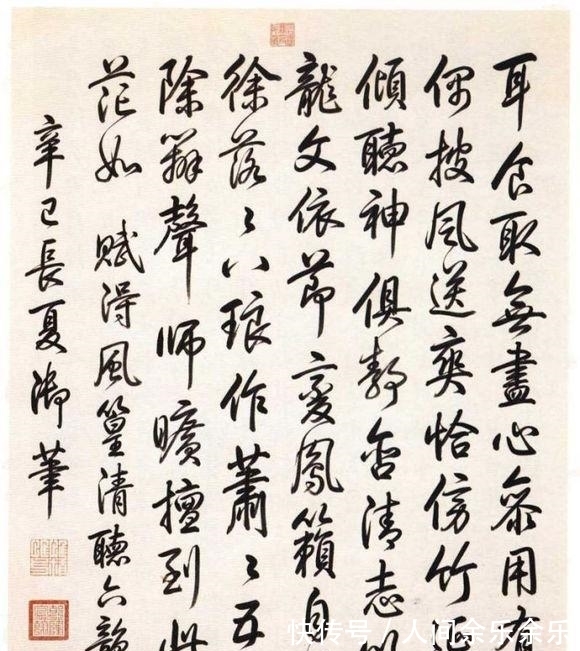 耳食取無盡心參用
偶披風送爽恰傍竹
傾聽神俱静含清志
龍文依節變鳳籟自
徐落〻八琅作蕭〻五
除辨聲師曠擅到此
茫如 賦得風篁清聽六韻
辛巳長夏御筆
快传号 / 人间余乐余乐